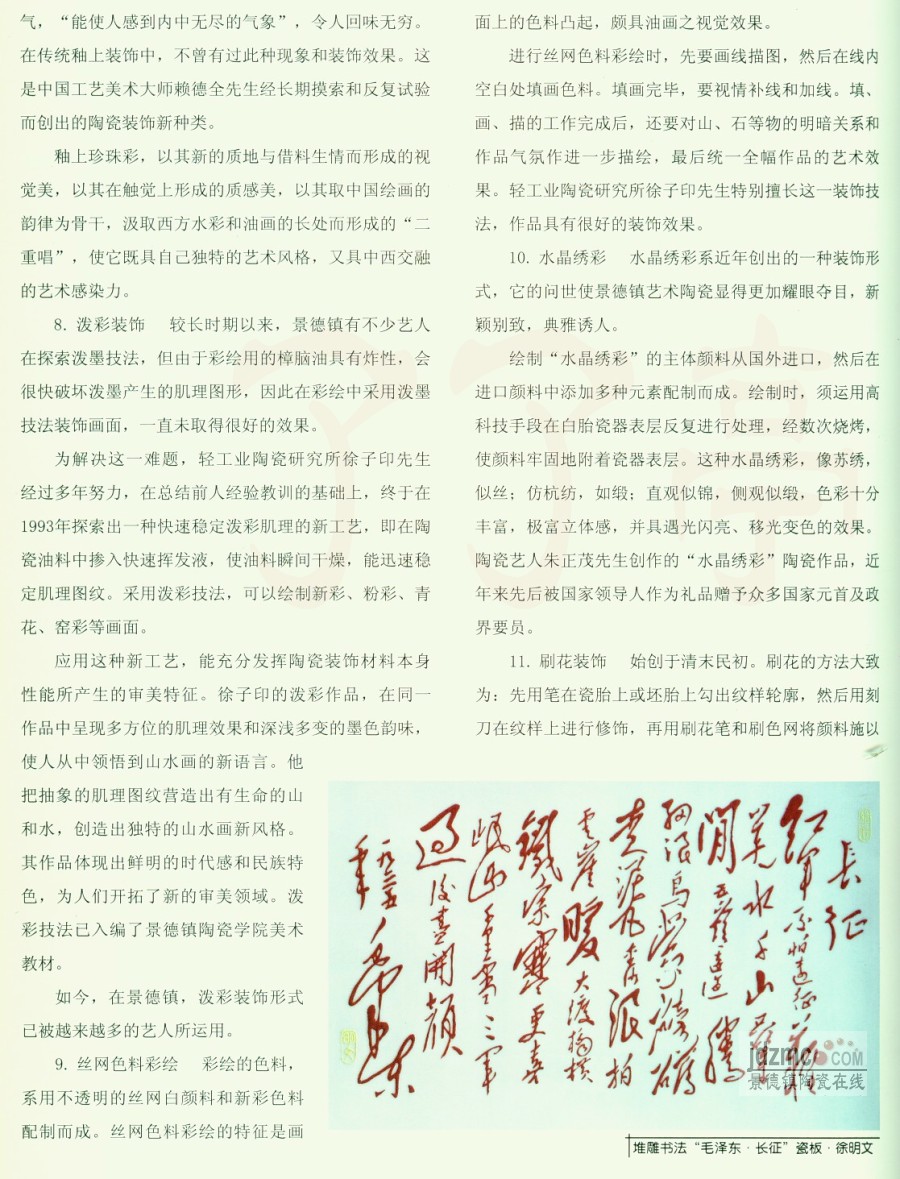 气，“能使人感到内中无尽的气象”，令人回味无穷。
在传统釉上装饰中，不曾有过此种现象和装饰效果。这
是中国工艺美术大师赖德全先生经长期摸索和反复试验
而创出的陶瓷装饰新种类。
釉上珍珠彩，以其新的质地与借料生情而形成的视
觉美，以其在触觉上形成的质感美，以其取中国绘画的
韵律为骨干，汲取西方水彩和油画的长处而形成的“二
重唱”，使它既具自己独特的艺术风格，又具中西交融
的艺术感染力。
8. 泼彩装饰 较长时期以来，景德镇有不少艺人
在探索泼墨技法，但由于彩绘用的樟脑油具有炸性，会
很快破坏泼墨产生的肌理图形，因此在彩绘中采用泼墨
技法装饰画面，一直未取得很好的效果。
为解决这一难题，轻工业陶瓷研究所徐子印先生
经过多年努力，在总结前人经验教训的基础上，终于在
1993年探索出一种快速稳定泼彩肌理的新工艺，即在陶
瓷油料中掺入快速挥发液，使油料瞬间干燥，能迅速稳
定肌理图纹。采用泼彩技法，可以绘制新彩、粉彩、青
花、窑彩等画面。
应用这种新工艺，能充分发挥陶瓷装饰材料本身
性能所产生的审美特征。徐子印的泼彩作品，在同一
作品中呈现多方位的肌理效果和深浅多变的墨色韵味，
使人从中领悟到山水画的新语言。他
把抽象的肌理图纹营造出有生命的山
和水，创造出独特的山水画新风格。
其作品体现出鲜明的时代感和民族特
色，为人们开拓了新的审美领域。泼
彩技法已入编了景德镇陶瓷学院美术
教材。
如今，在景德镇，泼彩装饰形式
已被越来越多的艺人所运用。
9. 丝网色料彩绘 彩绘的色料，
系用不透明的丝网白颜料和新彩色料
配制而成。丝网色料彩绘的特征是画
面上的色料凸起，颇具油画之视觉效果。
进行丝网色料彩绘时，先要画线描图，然后在线内
空白处填画色料。填画完毕，要视情补线和加线。填、
画、描的工作完成后，还要对山、石等物的明暗关系和
作品气氛作进一步描绘，最后统一全幅作品的艺术效
果。轻工业陶瓷研究所徐子印先生特别擅长这一装饰技
法，作品具有很好的装饰效果。
10. 水晶绣彩 水晶绣彩系近年创出的一种装饰形
式，它的问世使景德镇艺术陶瓷显得更加耀眼夺目，新
颖别致，典雅诱人。
绘制“水晶绣彩”的主体颜料从国外进口，然后在
进口颜料中添加多种元素配制而成。绘制时，须运用高
科技手段在白胎瓷器表层反复进行处理，经数次烧烤，
使颜料牢固地附着瓷器表层。这种水晶绣彩，像苏绣，
似丝；仿杭纺，如缎；直观似锦，侧观似缎，色彩十分
丰富，极富立体感，并具遇光闪亮、移光变色的效果。
陶瓷艺人朱正茂先生创作的“水晶绣彩”陶瓷作品，近
年来先后被国家领导人作为礼品赠予众多国家元首及政
界要员。
11. 刷花装饰 始创于清末民初。刷花的方法大致
为：先用笔在瓷胎上或坯胎上勾出纹样轮廓，然后用刻
刀在纹样上进行修饰，再用刷花笔和刷色网将颜料施以
长征
红军不怕远征难
万水千山
闲五岭逶迤腾
细浪乌蒙磅礴
走泥丸 浪拍
云崖暖大渡桥横
铁索寒更喜
岷山千里雪三军
过后尽开颜
毛泽东
jdzmc.COM
景德镇陶瓷在线
堆雕书法“毛泽东·长征”瓷板·徐明文